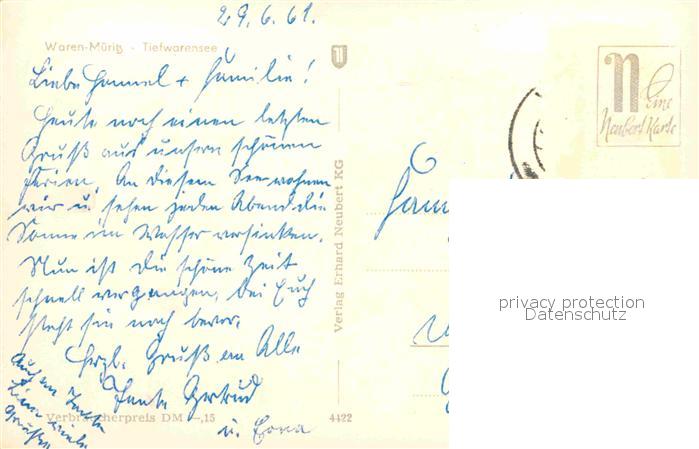 29.6.61.
Waren-Müritz - Tiefwarensee
Liebe Hannel + Familie!
Heute noch einen letzten
Gruß aus unsern schönen
Ferien. An diesem See wohnen
wir u. sehen jeden Abend die
Sonne im Wasser versinken.
Nun ist die schöne Zeit
schnell vergangen, bei Euch
steht sie noch bevor.
Herzl. Gruß an Alle
Tante Gertrud
u.
Auch an
viele
Grüße
Verbraucherpreis DM -,15
4422
Verlag Erhard Neubert KG
Eine
Neubert Karte
Fam
privacy protection
Datenschutz